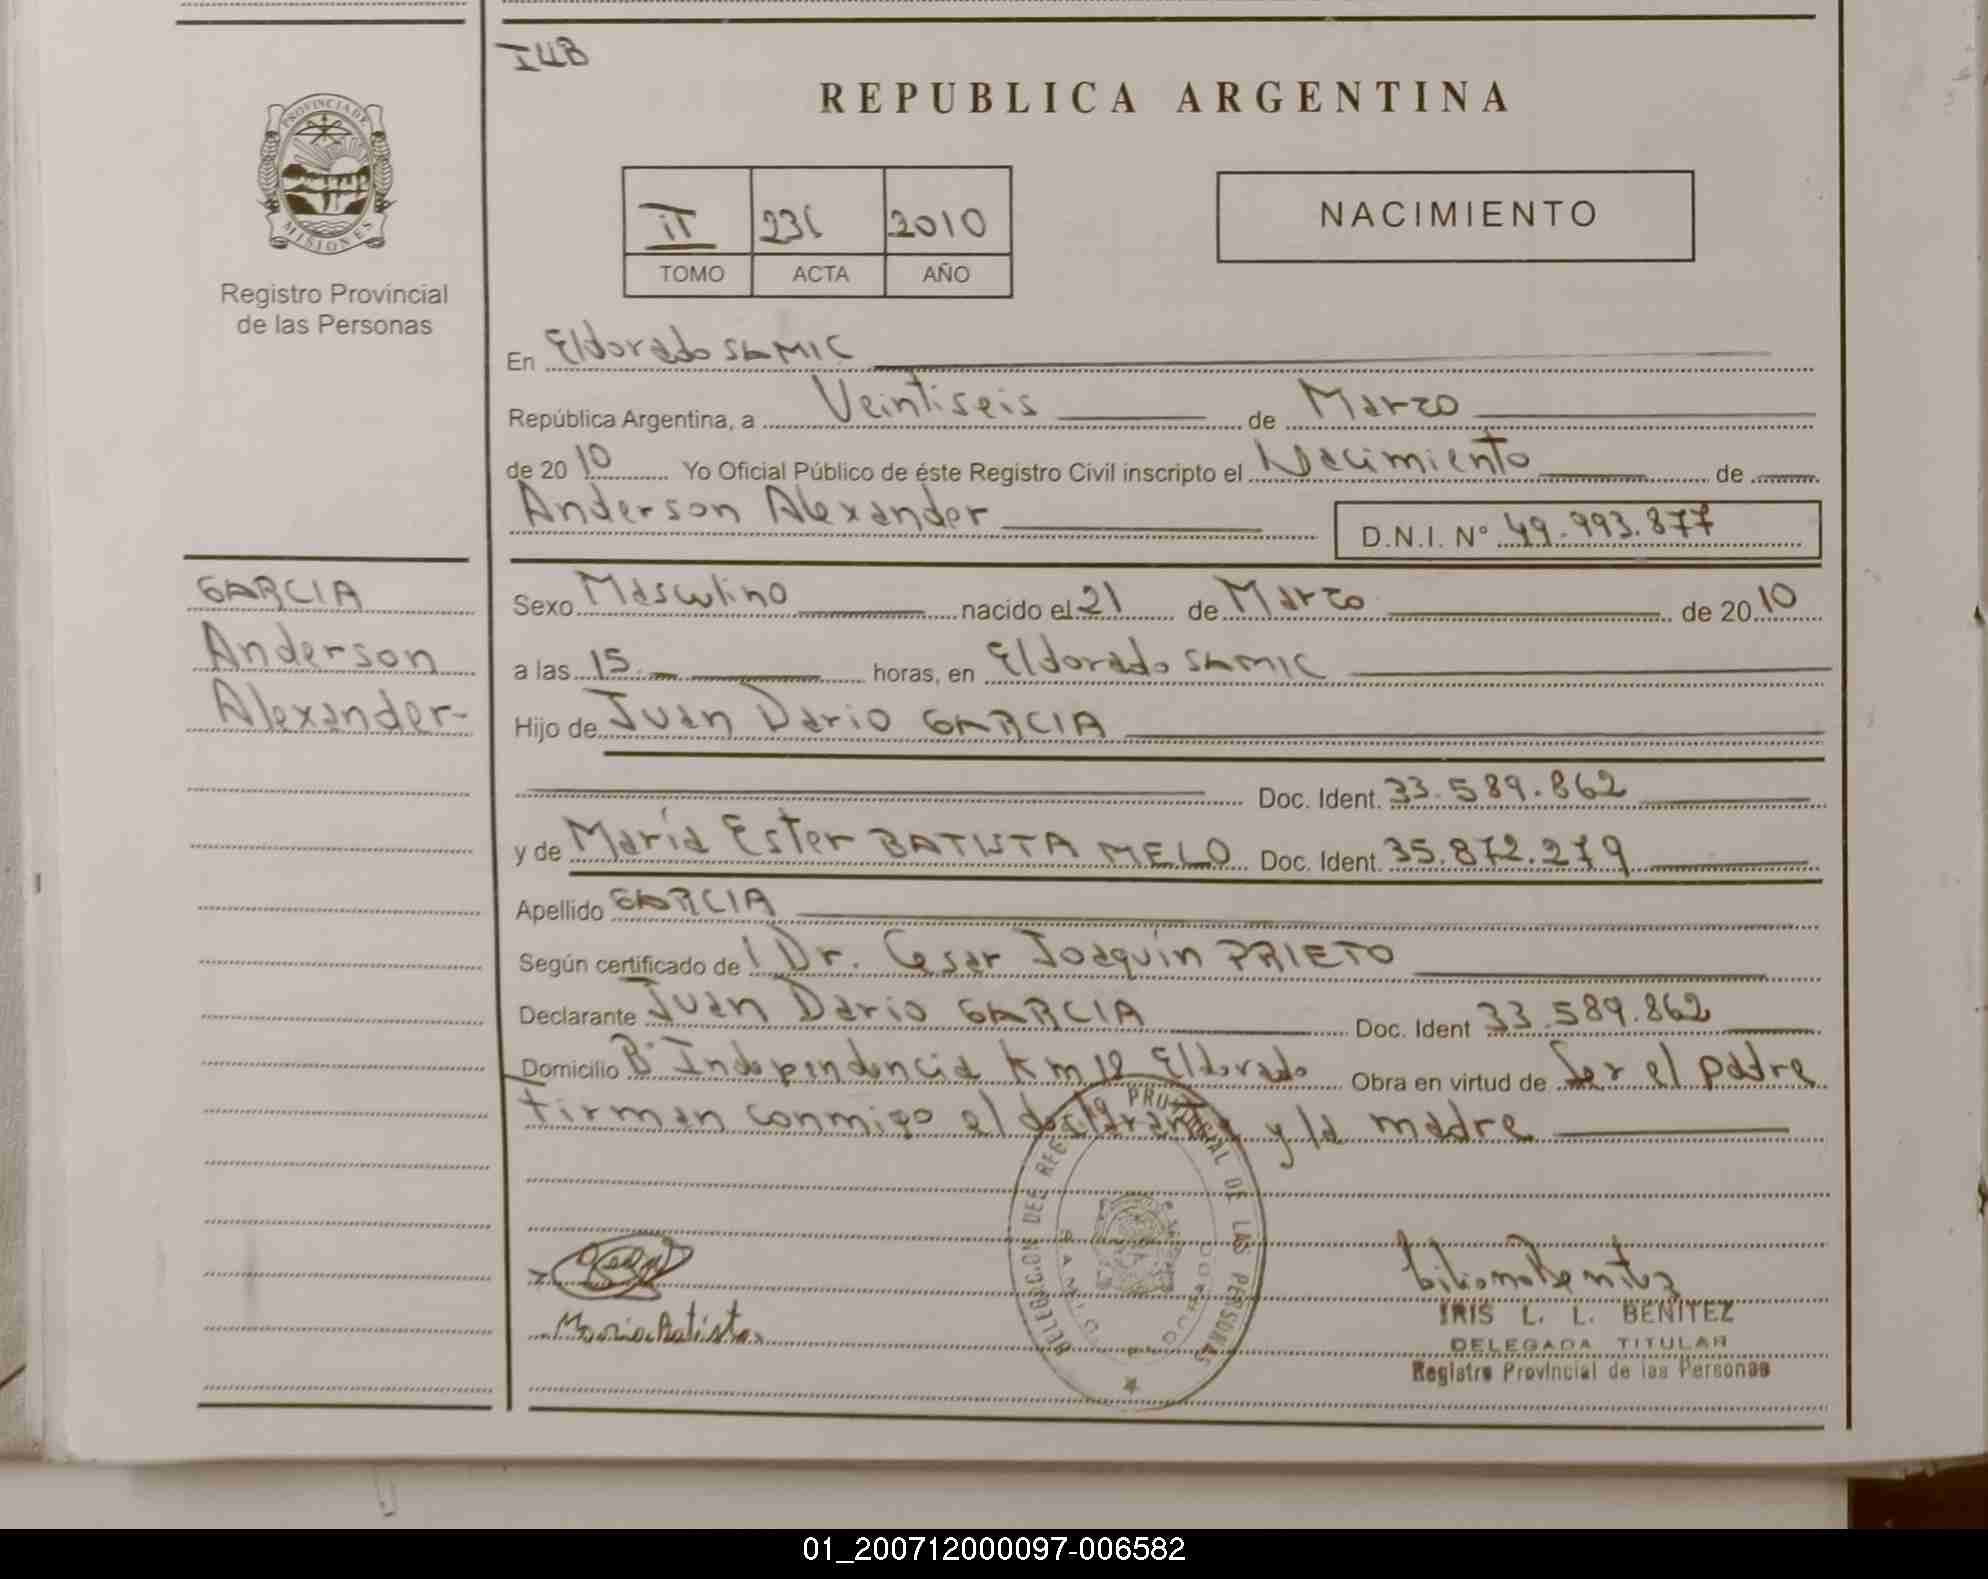 I4B
REPUBLICA ARGENTINA
PROVINCIA DE
MISIONES
Registro Provincial
de las Personas
II 231 2010
TOMO ACTA AÑO
NACIMIENTO
En Eldorado SAMIC
República Argentina, a Veintiseis de Marzo
de 2010 Yo Oficial Público de éste Registro Civil inscripto el Nacimiento de
Anderson Alexander D.N.I. Nº 49.993.877
GARCIA
Anderson
Alexander-
Sexo Masculino nacido el 21 de Marzo de 2010
a las 15 horas, en Eldorado SAMIC
Hijo de Juan Dario GARCIA
Doc. Ident. 33.589.862
y de María Ester BATISTA MELO Doc. Ident. 35.872.279
Apellido GARCIA
Según certificado de Dr. Cesar Joaquín PRIETO
Declarante Juan Dario GARCIA Doc. Ident 33.589.862
Domicilio Bº Independencia Km 12 Eldorado Obra en virtud de Ser el padre
firman conmigo el declarante y la madre
DELEGACION DEL REG PROVINCIAL DE LAS PERSONAS
Maria Batista
Liliana Benitez
IRIS L. L. BENITEZ
DELEGADA TITULAR
Registro Provincial de las Personas
01_200712000097-006582